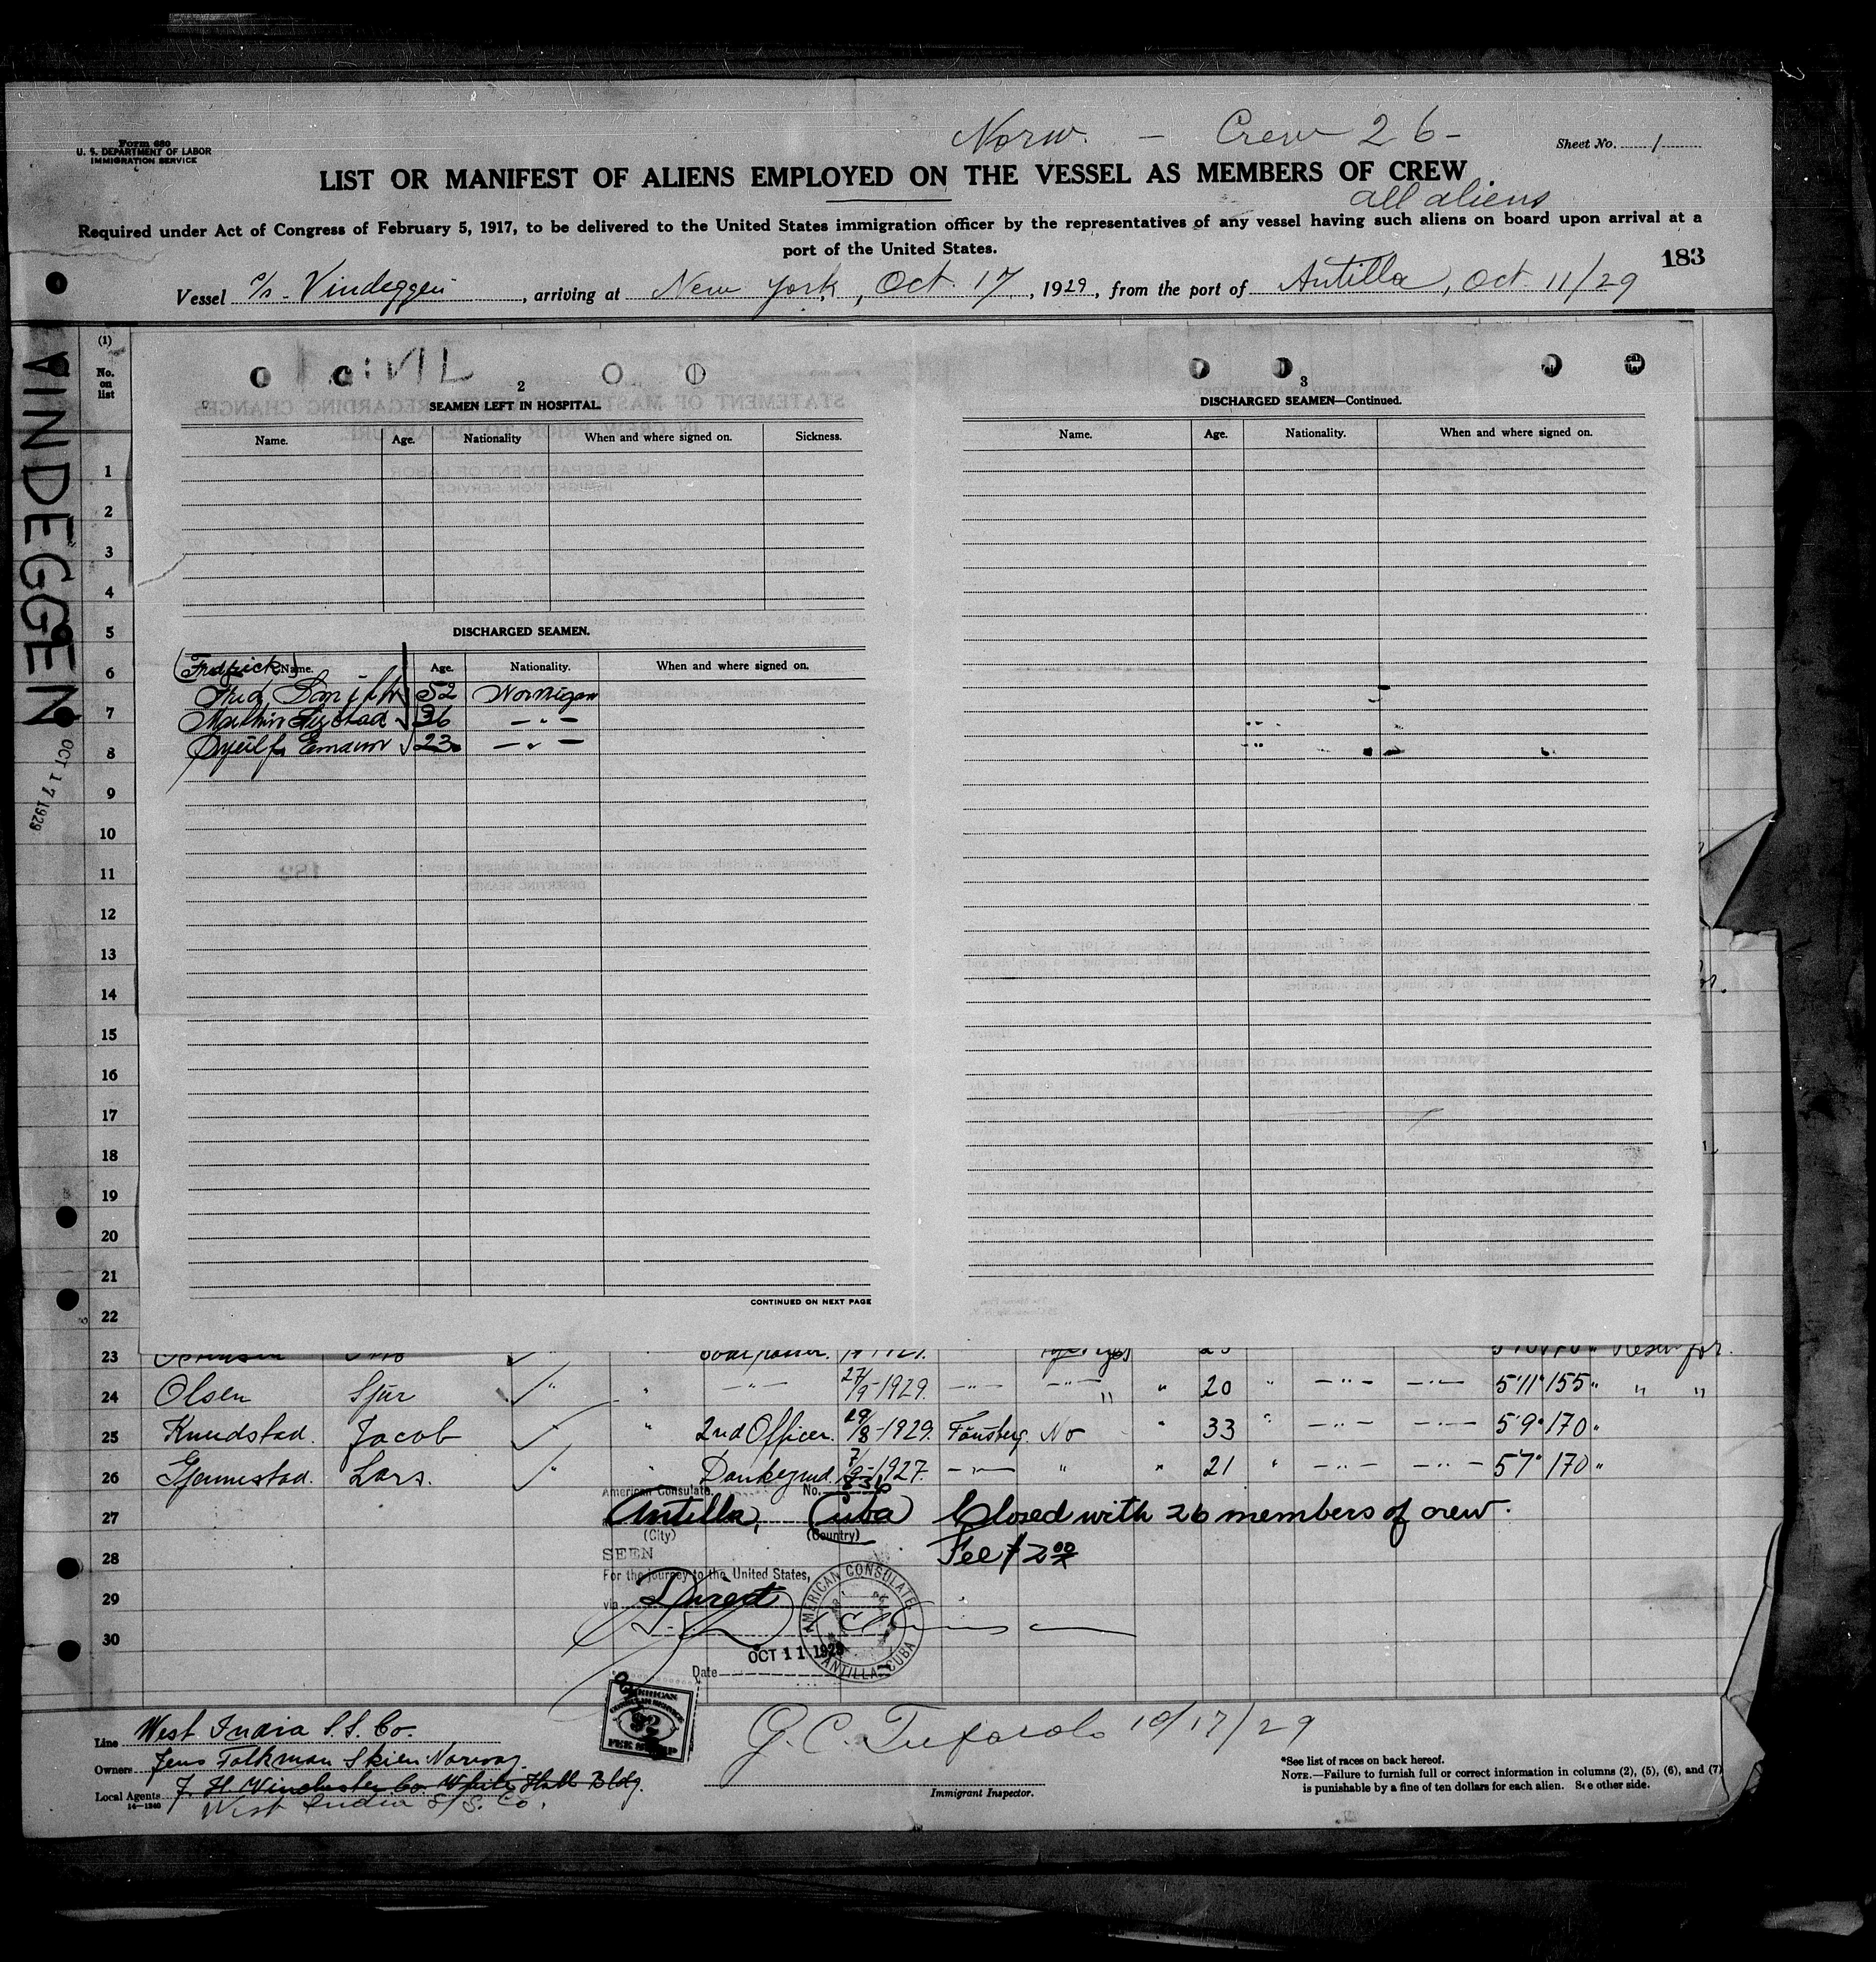 Norw. - Crew 26-
Form 680
U. S. DEPARTMENT OF LABOR
IMMIGRATION SERVICE
Sheet No. 1
LIST OR MANIFEST OF ALIENS EMPLOYED ON THE VESSEL AS MEMBERS OF CREW
all aliens
Required under Act of Congress of February 5, 1917, to be delivered to the United States immigration officer by the representatives of any vessel having such aliens on board upon arrival at a
port of the United States.
183
Vessel S/S. Vindeggen, arriving at New York, Oct. 17, 1929, from the port of Antilla, Oct. 11/29
VINDEGGEN OCT 17 1929
(1)
No. on list
2
SEAMEN LEFT IN HOSPITAL.
Name. Age. Nationality When and where signed on. Sickness.
DISCHARGED SEAMEN.
Name. Age. Nationality. When and where signed on.
(Fredrick)
Fred Smith 52
36 -"-
23 -"-
CONTINUED ON NEXT PAGE
3
DISCHARGED SEAMEN—Continued.
Name. Age. Nationality. When and where signed on.
1
2
3
4
5
6
7
8
9
10
11
12
13
14
15
16
17
18
19
20
21
22
23
24 Olsen 27/9-1929. -"- -"- " 20 " -"- -"- 5'11" 155 " " "
25 Knudstad. Jacob " 2nd Officer. 29/8-1929. Tönsberg. No " 33 " -"- -"- 5'9" 170 "
26 Lars. " 1927. -"- " " 21 " -"- -"- 5'7" 170 "
27
28
29
30
American Consulate. No.
Antilla, Cuba Closed with 26 members of crew.
(City) (Country)
Fee $2.00
SEEN
For the journey to the United States,
via Direct
AMERICAN CONSULATE ANTILLA, CUBA
OCT 11 1929
Date
AMERICAN
FEE STAMP
Line West India S.S. Co.
Owners Jens Folkman Skien Norway.
Local Agents F. H. Winchester Co. White Hall Bldg.
West India S/S. Co.
14-1240
10/17/29
Immigrant Inspector.
*See list of races on back hereof.
NOTE.—Failure to furnish full or correct information in columns (2), (5), (6), and (7)
is punishable by a fine of ten dollars for each alien. See other side.